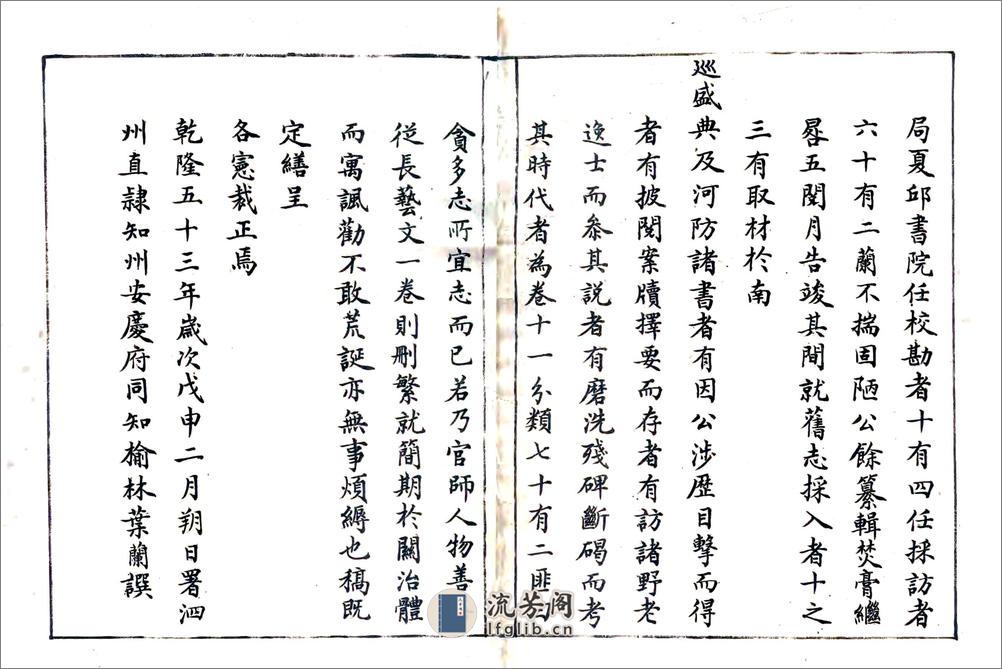 局夏邱書院任校勘者十有四任採訪者
六十有二蘭不揣固陋公餘纂輯焚膏繼
晷五閱月告竣其間就舊志採入者十之
三有取材於南
巡盛典及河防諸書者有因公涉歷目擊而得
者有披閱案牘擇要而存者有訪諸野老
逸士而叅其說者有磨洗殘碑斷碣而考
其時代者為卷十一分類七十有二匪
貪多志所宜志而已若乃官師人物善善
從長藝文一卷則刪繁就簡期於關治體
而寓諷勸不敢荒誕亦無事煩縟也稿既
定繕呈
各憲裁正焉
乾隆五十三年歲次戊申二月朔日署泗
州直隷知州安慶府同知榆林葉蘭譔
流芳阁
lfglib.cn